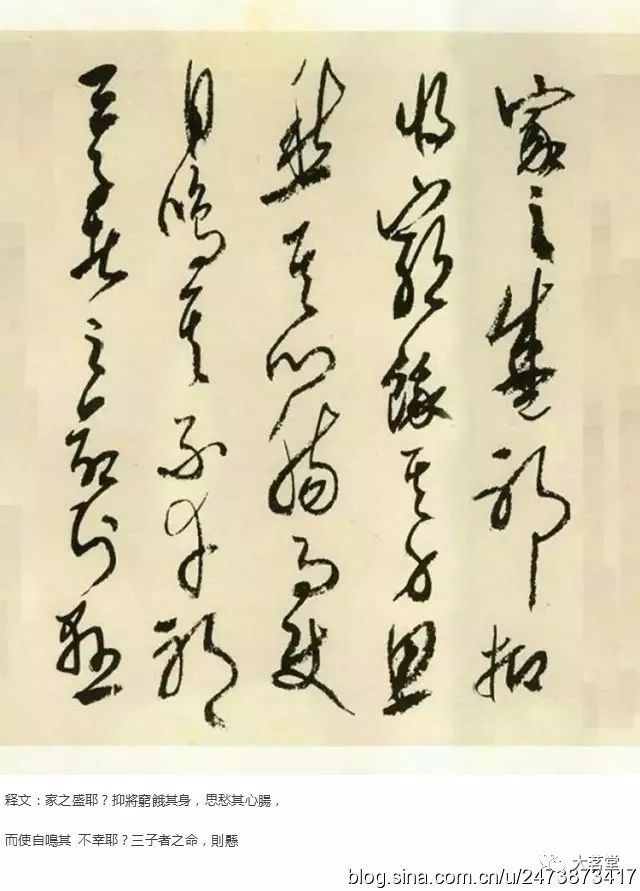 家之盛耶抑
將窮餓其身思
愁其心腸而使
自鳴其不幸耶
三子者之命則懸
释文：家之盛耶？抑將窮餓其身，思愁其心腸，
而使自鳴其 不幸耶？三子者之命，則懸
大茗堂
blog.sina.com.cn/u/2473873417